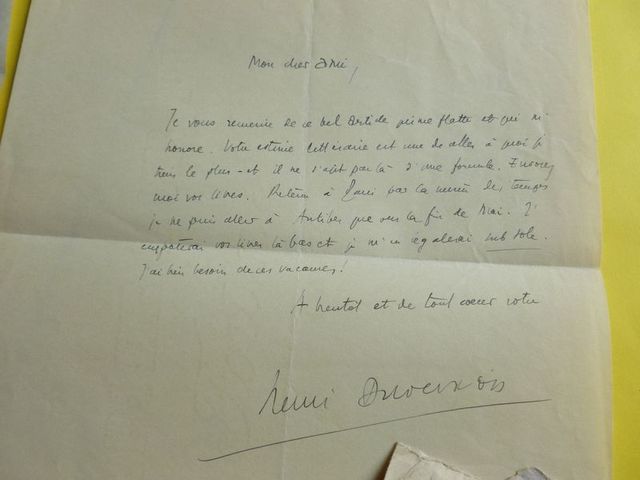 Mon cher ami,
Je vous remercie de ce bel article qui me flatte et qui m'
honore. Votre estime littéraire est une de celles à quoi je
tiens le plus - et il ne s'agit pas là d'une formule. Envoyez
moi vos livres. Retenu à Paris par la
je ne puis aller à Antibes que vers la fin de Mai. J'
emporterai vos livres là bas et je m'en régalerai sub sole.
J'ai bien besoin de ces vacances!
A bientot et de tout coeur votre
Henri Duvernois